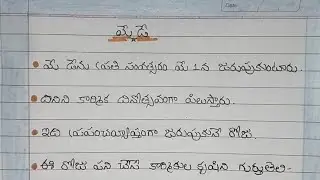 మే డే
మే డేను ప్రతి సంవత్సరం మే 1న జరుపుకుంటారు.
దీనిని కార్మిక దినోత్సవంగా పిలుస్తారు.
ఇది ప్రపంచవ్యాప్తంగా జరుపుకునే రోజు.
ఈ రోజు పని చేసే కార్మికుల కృషిని గుర్తుతెలి-